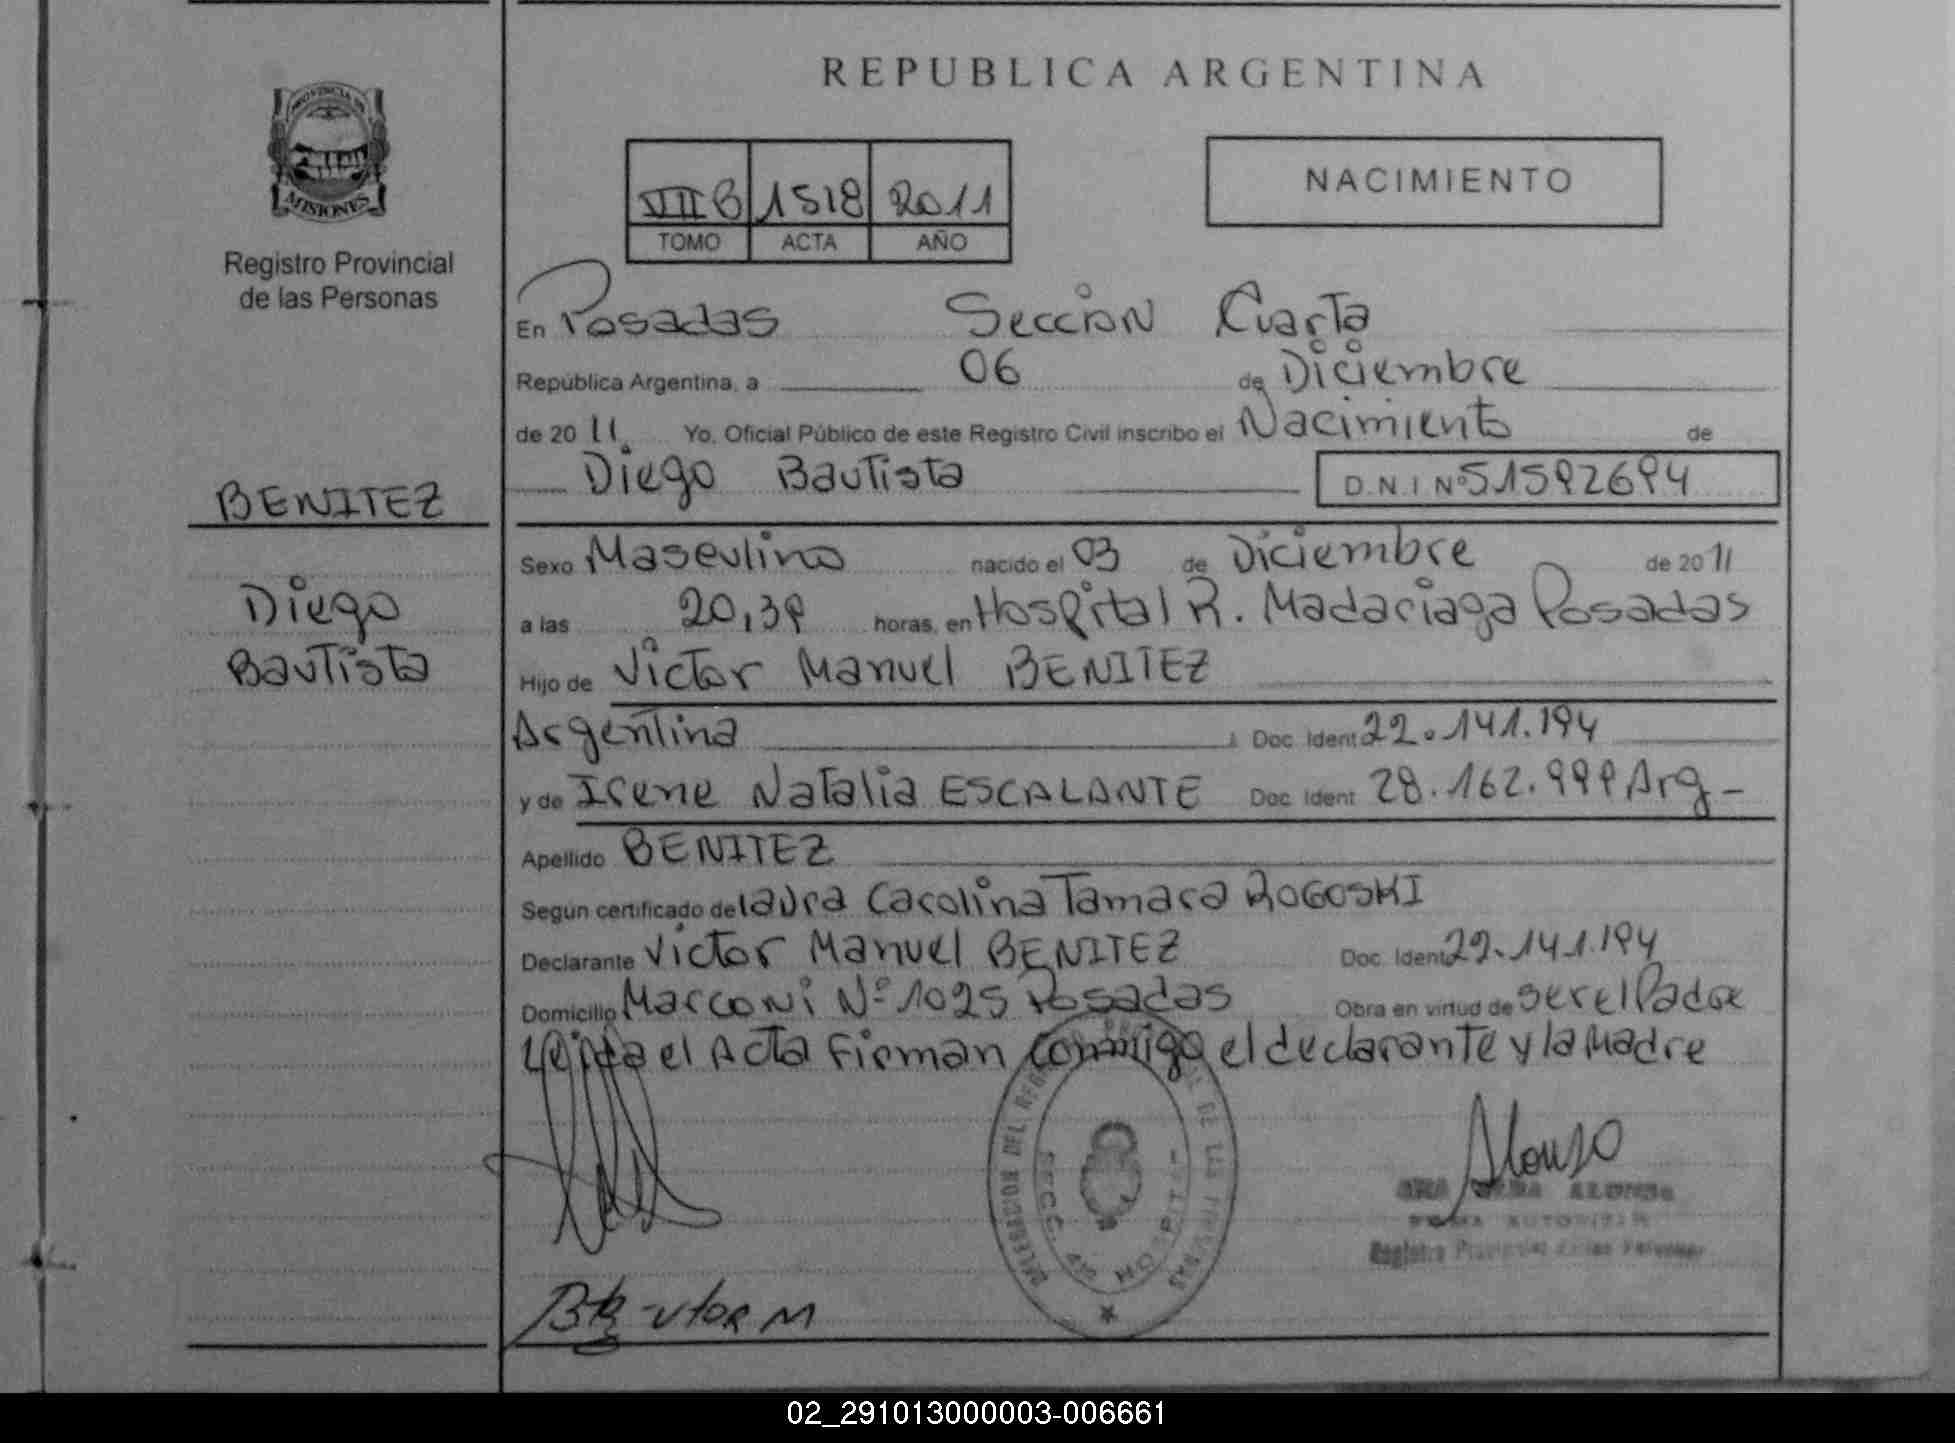 REPUBLICA ARGENTINA
PROVINCIA DE
MISIONES
Registro Provincial
de las Personas
VIII B 1518 2011
TOMO ACTA AÑO
NACIMIENTO
En Posadas Sección Cuarta
República Argentina, a 06 de Diciembre
de 2011. Yo, Oficial Público de este Registro Civil inscribo el Nacimiento de
Diego Bautista D.N.I Nº 51592694
BENITEZ
Diego
Bautista
Sexo Masculino nacido el 03 de Diciembre de 2011
a las 20,39 horas, en Hospital R. Madariaga Posadas
Hijo de Victor Manuel BENITEZ
Argentina Doc. Ident 22.141.194
y de Irene Natalia ESCALANTE Doc. Ident 28.162.999 Arg-
Apellido BENITEZ
Según certificado de Laura Carolina Tamara ROGOSKI
Declarante Victor Manuel BENITEZ Doc. Ident 22.141.194
Domicilio Marconi Nº 1025 Posadas Obra en virtud de ser el Padre
Leida el Acta Firman Conmigo el declarante y la Madre
DELEGACION DEL
DE LAS PERSONAS
SECC. 4ª HOSPITAL
Alonso
ALONSO
Registro Provincial
02_291013000003-006661